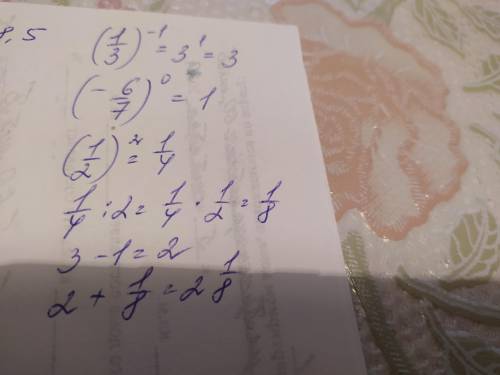 8,5
(1/3)^-1 = 3^1 = 3
(- 6/7)^0 = 1
(1/2)^2 = 1/4
1/4 : 2 = 1/4 · 1/2 = 1/8
3 - 1 = 2
2 + 1/8 = 2 1/8